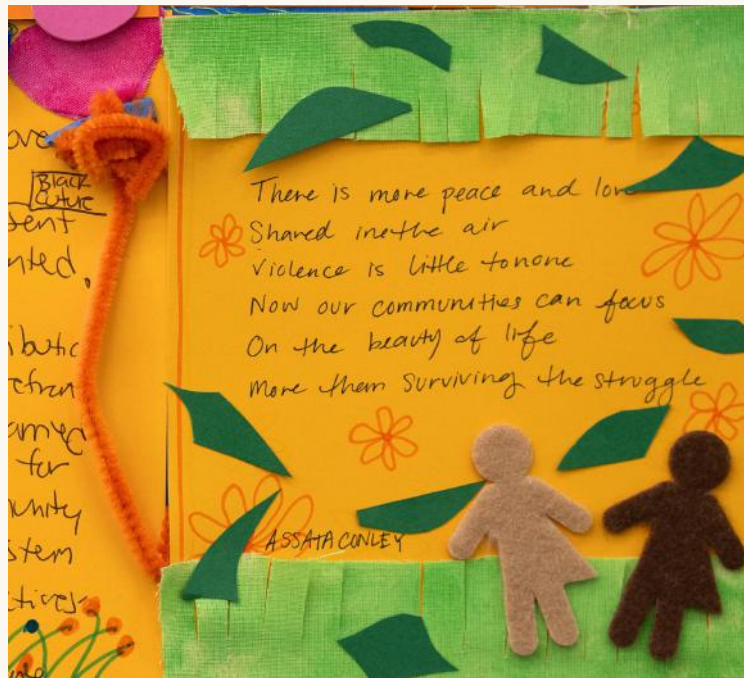 ove
Black
Future
tent
nted.
ibutic
arried
for
unity
stem
ctives-
There is more peace and love
Shared in the air
Violence is little to none
Now our communities can focus
On the beauty of life
More them Surviving the struggle
ASSATA CONLEY